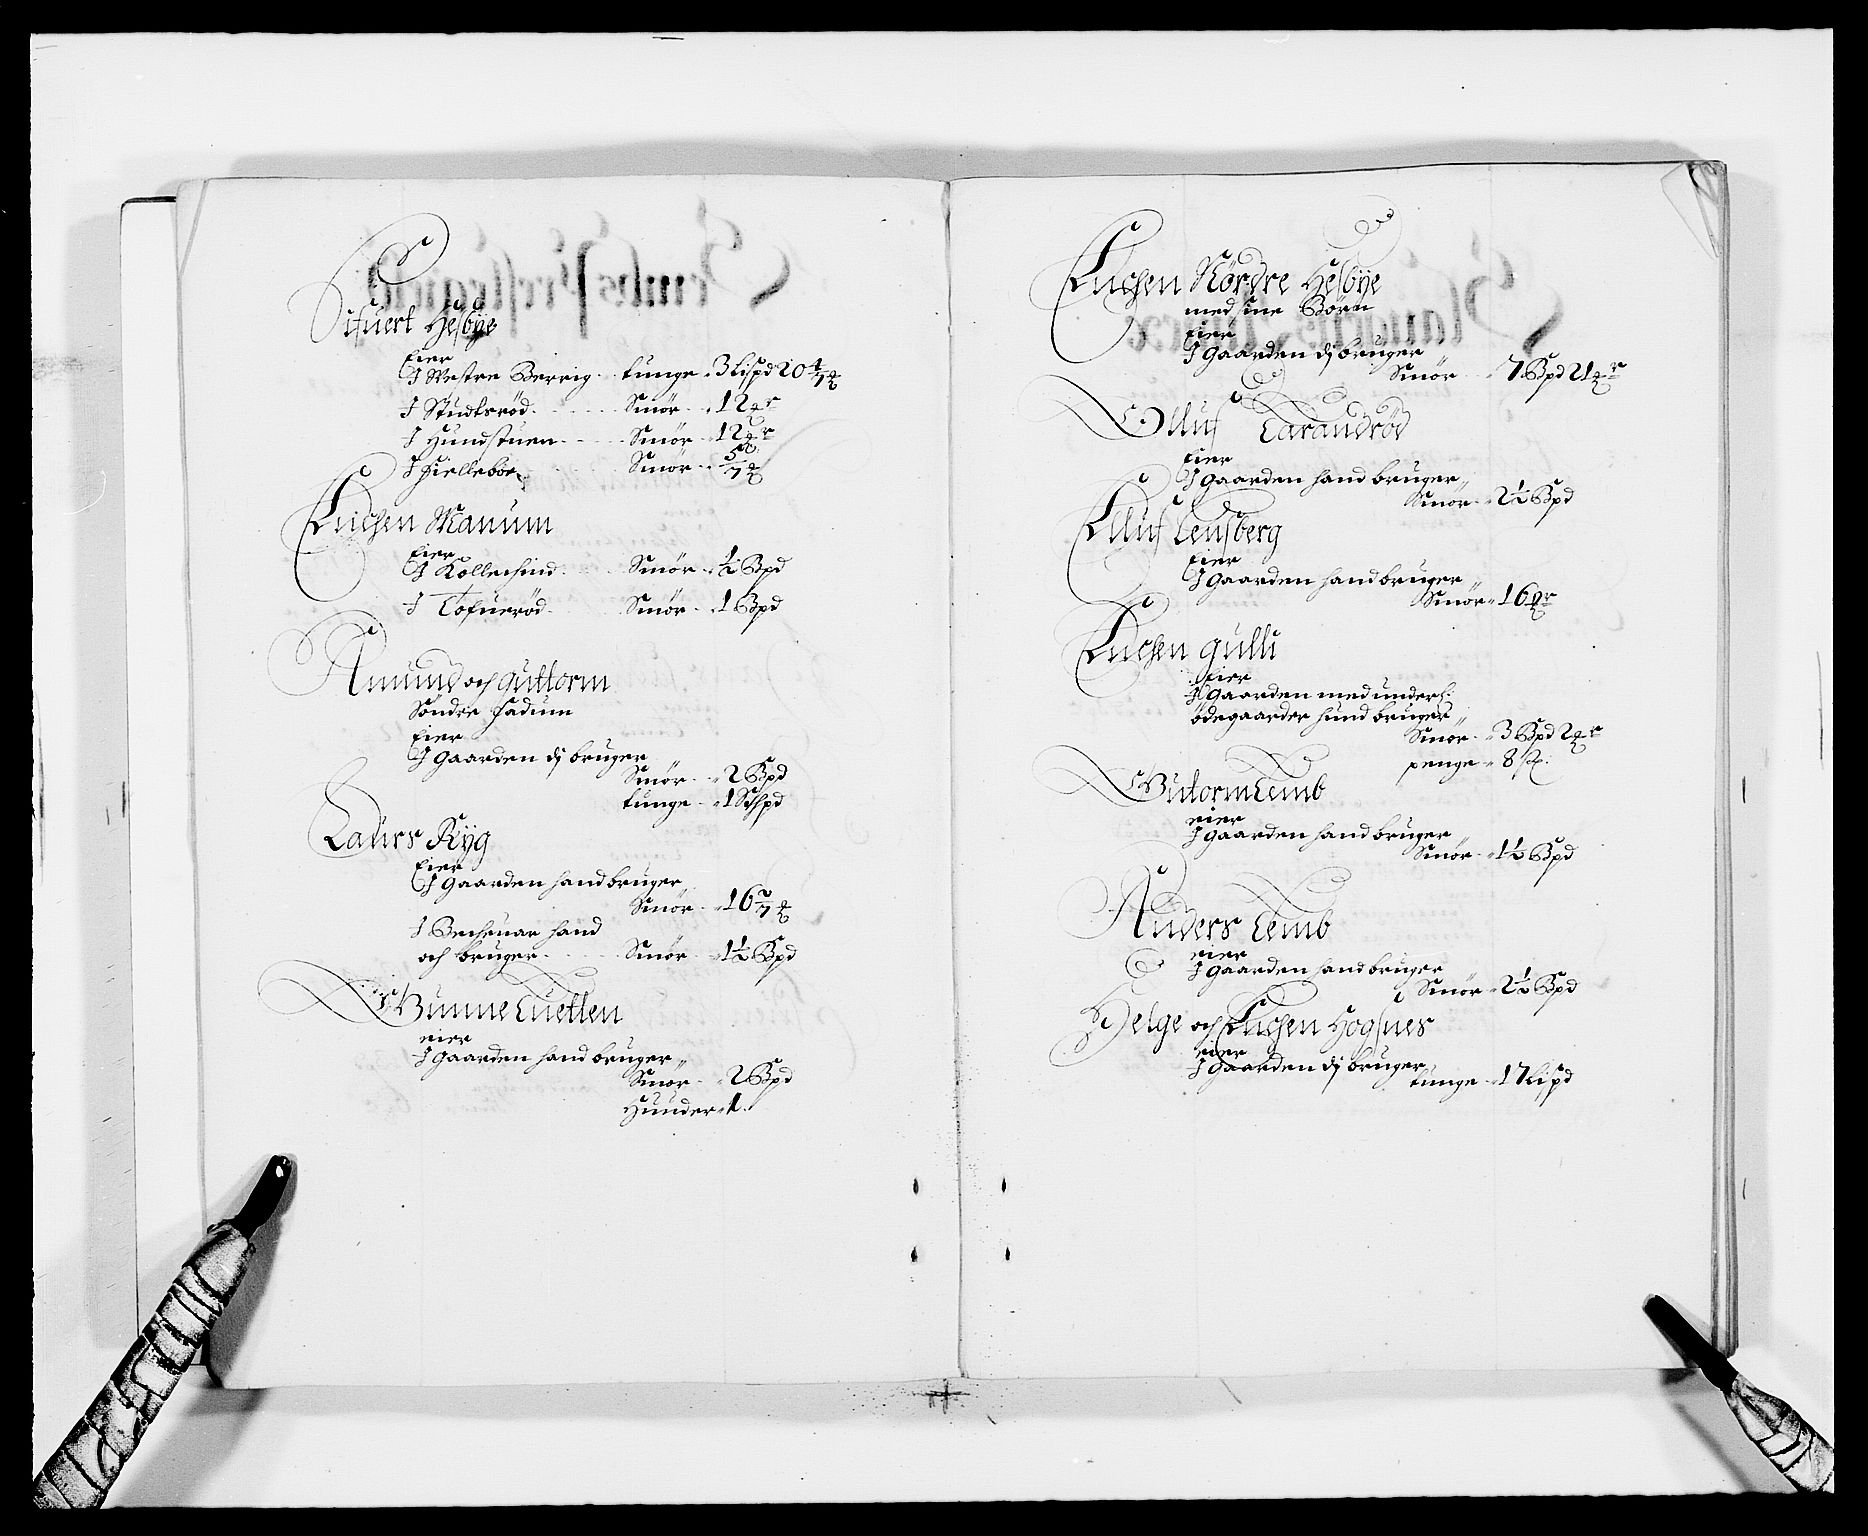 Sifuert Hesbye
Eier
J Westre Berrig tunge 3 Lispd 20
J Studtsröd Smör 12
J Hundstuen Smör 12
J Fielleboe Smör
Enchen Manum
Eier
J Kollechind Smör ½ Bpd
J Tofueröd Smör 1 Bpd
Amund och Guttorm
Söndre Fadum
Eier
J Gaarden dj bruger
Smör 2 Bpd
tunge 1 Schpd
Laurs Ryg
Eier
J Gaarden hand bruger
Smör 16
J Becheuar hand
och bruger Smör 1½ Bpd
Gunne Tuetten
eier
J Gaarden hand bruger
Smör 2 Bpd
Huuder 1
Enchen Nördre Hesbye
med sine Börn
Eier
J Gaarden dj bruger
Smör 7 Bpd 21
Olluf Tarandröd
Eier
J Gaarden hand bruger
Smör 2½ Bpd
Olluf Lensberg
Eier
J Gaarden hand bruger
Smör 16
Enchen Gulli
Eier
J Gaarden med underl:
ödegaarder hund bruger
Smör 3 Bpd 2
penge 8 sk:
Gutorm Lemb
eier
J Gaarden hand bruger
Smör 1½ Bpd
Anders Lemb
eier
J Gaarden hand bruger
Smör 2½ Bpd
Helge och Enchen Hogsnes
eier
J Gaarden dj bruger
tunge 17 Lispd